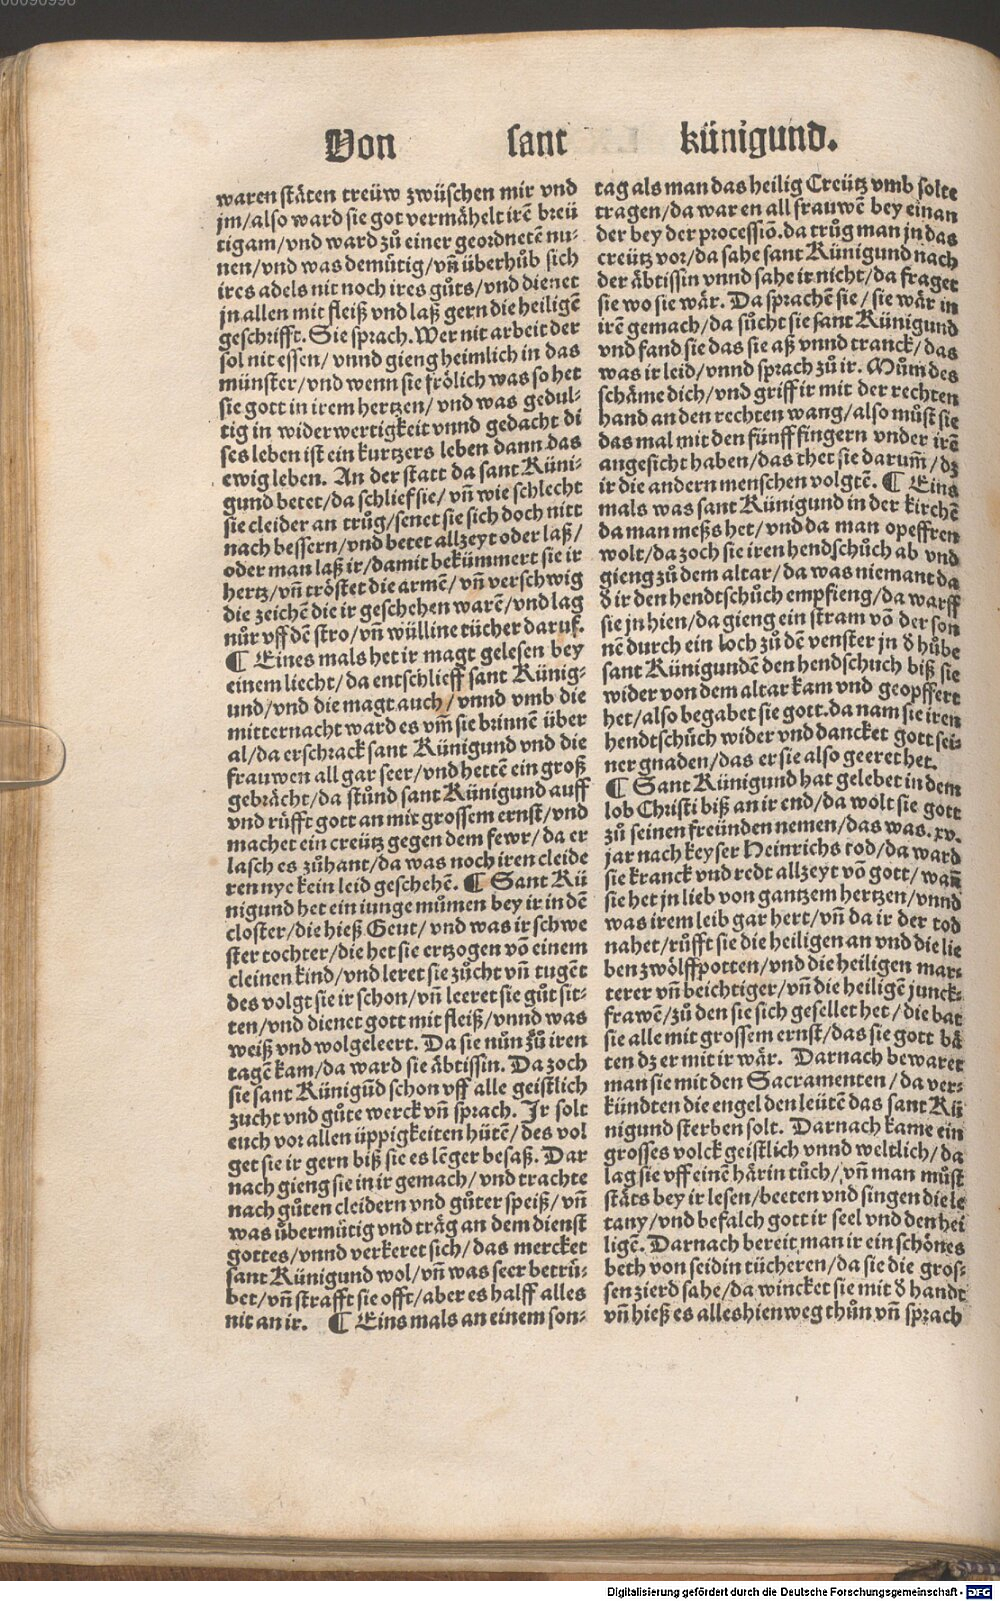 Von sant künigund.
waren stäten treüw zwüschen mir vnd
jm/also ward sie got vermähelt irē breü
tigam/vnd ward zů einer geordnetē nu-
nen/vnd was demütig/vñ überhůb sich
ires adels nit noch ires gůts/vnd dienet
jn allen mit fleiß vnd laß gern die heiligē
geschrifft. Sie sprach. Wer nit arbeit der
sol nit essen/ vnnd gieng heimlich in das
münster/vnd wenn sie frölich was so het
sie gott in irem hertzen/ vnd was gedul-
tig in widerwertigkeit vnnd gedacht di
ses leben ist ein kurtzers leben dann das
ewig leben. An der statt da sant Küni-
gund betet/da schlief sie/ vñ wie schlecht
sie cleider an trůg/senet sie sich doch nitt
nach bessern/vnd betet allzeyt oder laß/
oder man laß ir/damit bekümmert sie ir
hertz/vñ tröstet die armē/ vñ verschwig
die zeichē die ir geschehen warē/vnd lag
nůr vff dē stro/vñ wülline tücher daruf.
¶ Eines mals het ir magt gelesen bey
einem liecht/da entschlieff sant Künig-
und/vnd die magt auch/ vnnd vmb die
mitternacht ward es vm̄ sie brinnē über
al/da erschrack sant Künigund vnd die
frauwen all gar seer/vnd hettē ein groß
gebrächt/da stůnd sant Künigund auff
vnd růfft gott an mit grossem ernst/vnd
machet ein creütz gegen dem fewr/da er
lasch es zůhant/da was noch iren cleide
ren nye kein leid geschehē. ¶ Sant Kü
nigund het ein iunge můmen bey ir in dē
closter/die hieß Geut/ vnd was ir schwe
ster tochter/die het sie ertzogen vō einem
cleinen kind/vnd leret sie zůcht vñ tugēt
des volgt sie ir schon/vñ leeret sie gůt sit-
ten/vnd dienet gott mit fleiß/vnnd was
weiß vnd wolgeleert. Da sie nůn zů iren
tagē kam/da ward sie äbtissin. Da zoch
sie sant Künigūd schon vff alle geistlich
zucht vnd gůte werck vñ sprach. Ir solt
euch vor allen üppigkeiten hütē/des vol
get sie ir gern biß sie es lēger besaß. Dar
nach gieng sie in ir gemach/vnd trachte
nach gůten cleidern vnd gůter speiß/vñ
was übermütig vnd träg an dem dienst
gottes/vnnd verkeret sich/das mercket
sant Künigund wol/vñ was seer betrü-
bet/vñ strafft sie offt/aber es halff alles
nit an ir. ¶ Eins mals an einem son-
tag als man das heilig Creütz vmb solte
tragen/da waren all frauwē bey einan
der bey der processiō.da trůg man jn das
creütz vor/da sahe sant Künigund nach
der äbtissin vnnd sahe ir nicht/da fraget
sie wo sie wär. Da sprachē sie/sie wär in
irē gemach/da sůcht sie sant Künigund
vnd fand sie das sie aß vnnd tranck/das
was ir leid/vnnd sprach zů ir. Mům des
schäme dich/vnd griff ir mit der rechten
hand an den rechten wang/also můst sie
das mal mit den fünff fingern vnder irē
angesicht haben/das thet sie darum̄/dz
ir die andern menschen volgtē. ¶ Eins
mals was sant Künigund in der kirchē
da man meßs het/vnd da man opeffren
wolt/da zoch sie iren hendschůch ab vnd
gieng zů dem altar/da was niemant da
d̄ ir den hendtschůch empfieng/da warff
sie jn hien/da gieng ein stram vō der son
nē durch ein loch zů dē venster jn d̄ hůbe
sant Künigundē den hendschuch biß sie
wider von dem altar kam vnd geopffert
het/also begabet sie gott.da nam sie iren
hendtschůch wider vnd dancket gott sei-
ner gnaden/das er sie also geeret het.
¶ Sant Künigund hat gelebet in dem
lob Christi biß an ir end/da wolt sie gott
zů seinen freünden nemen/das was. xv.
jar nach keyser Heinrichs tod/da ward
sie kranck vnd redt allzeyt vō gott/wañ
sie het jn lieb von gantzem hertzen/vnnd
was irem leib gar hert/vñ da ir der tod
nahet/růfft sie die heiligen an vnd die lie
ben zwölffpotten/vnd die heiligen mar-
terer vñ beichtiger/vñ die heiligē junck-
frawē/zů den sie sich gesellet het/die bat
sie alle mit grossem ernst/das sie gott bä
ten dz er mit ir wär. Darnach bewaret
man sie mit den Sacramenten/da ver-
kündten die engel den leütē das sant Kü
nigund sterben solt. Darnach kame ein
grosses volck geistlich vnnd weltlich/da
lag sie vff einē härin tůch/vñ man můst
stäts bey ir lesen/beeten vnd singen die le
tany/vnd befalch gott ir seel vnd den hei
ligē. Darnach bereit man ir ein schönes
beth von seidin tücheren/da sie die gros-
sen zierd sahe/da wincket sie mit d̄ handt
vñ hieß es alles hienweg thůn vñ sprach
Digitalisierung gefördert durch die Deutsche Forschungsgemeinschaft - DFG